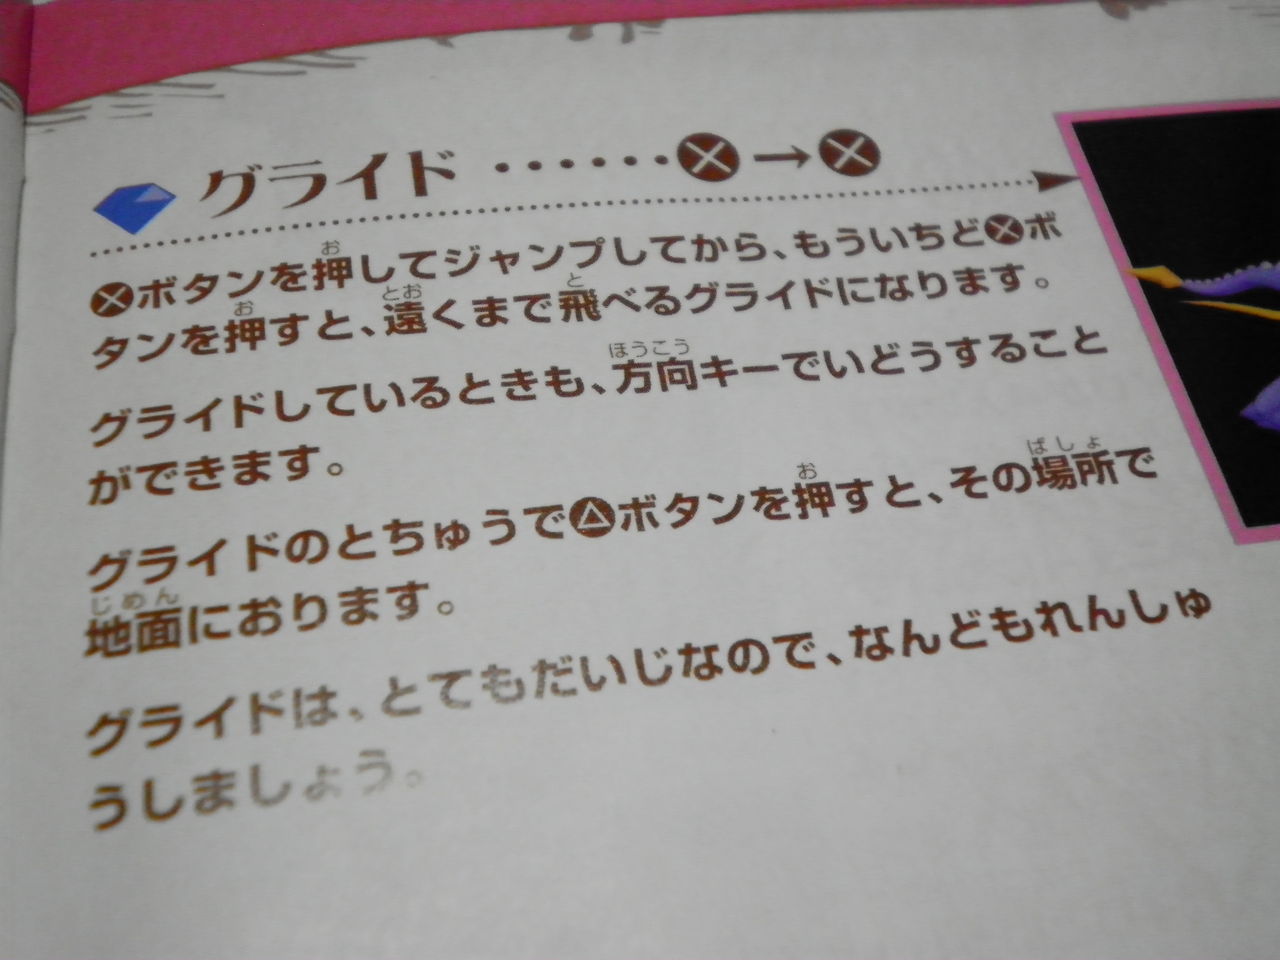 グライド ······Ⓧ→Ⓧ
Ⓧボタンを押してジャンプしてから、もういちどⓍボ
タンを押すと、遠くまで飛べるグライドになります。
グライドしているときも、方向キーでいどうすること
ができます。
グライドのとちゅうで△ボタンを押すと、その場所で
地面におります。
グライドは、とてもだいじなので、なんどもれんしゅ
うしましょう。